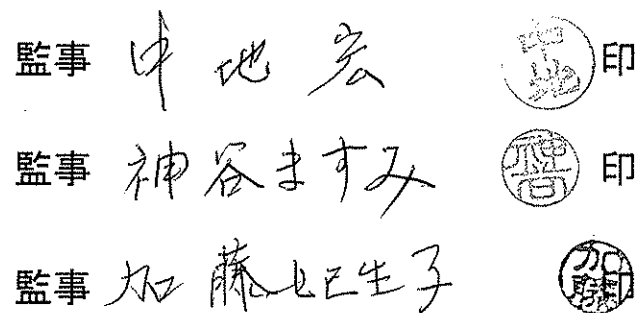 監事 中地 宏 中地 印
監事 神谷ますみ 神谷 印
監事 加藤 生子 加藤 印